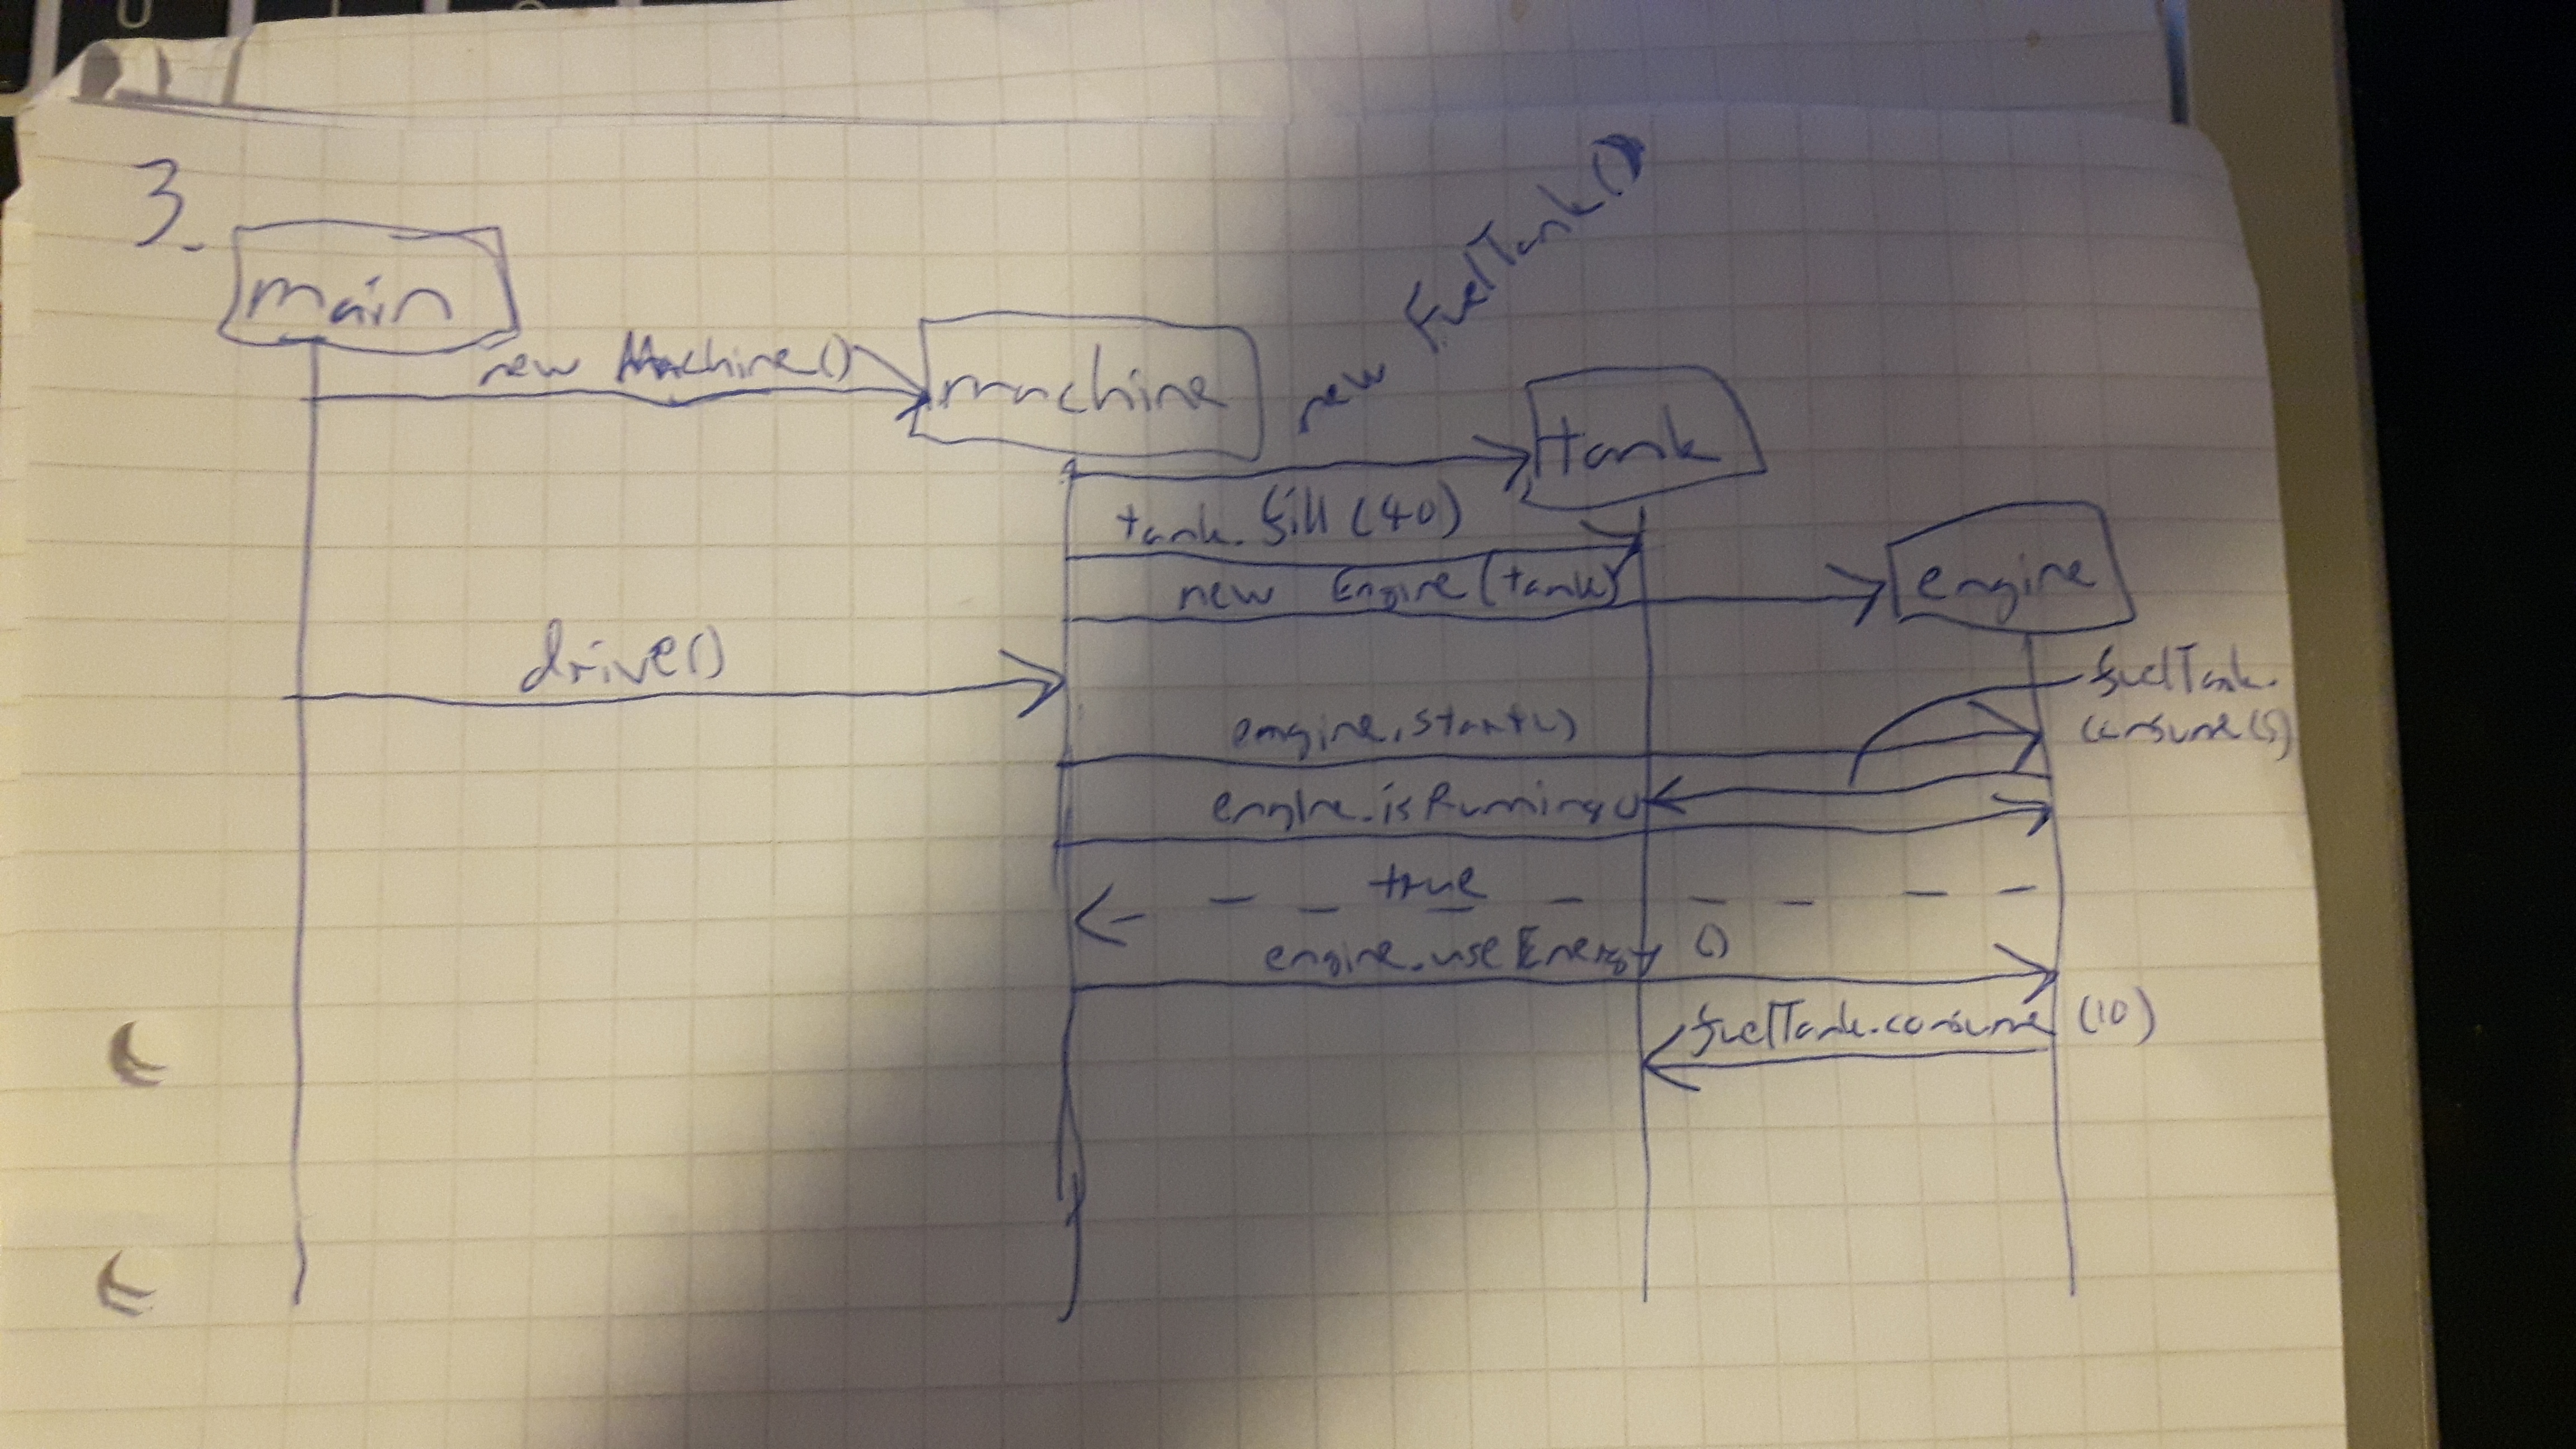 3.
main
new Machine()
machine
new FuelTank()
tank
tank.fill(40)
new Engine(tank)
engine
drive()
fuelTank.
consume(5)
engine.start()
engine.isRunning()
true
engine.useEnergy()
fuelTank.consume (10)